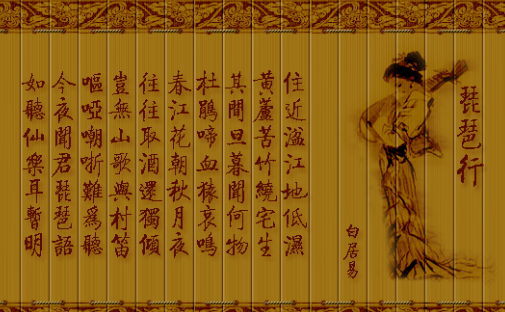 琵琶行
白居易
住近湓江地低濕
黃蘆苦竹繞宅生
其間旦暮聞何物
杜鵑啼血猿哀鳴
春江花朝秋月夜
往往取酒還獨傾
豈無山歌與村笛
嘔啞嘲哳難爲聽
今夜聞君琵琶語
如聽仙樂耳暫明